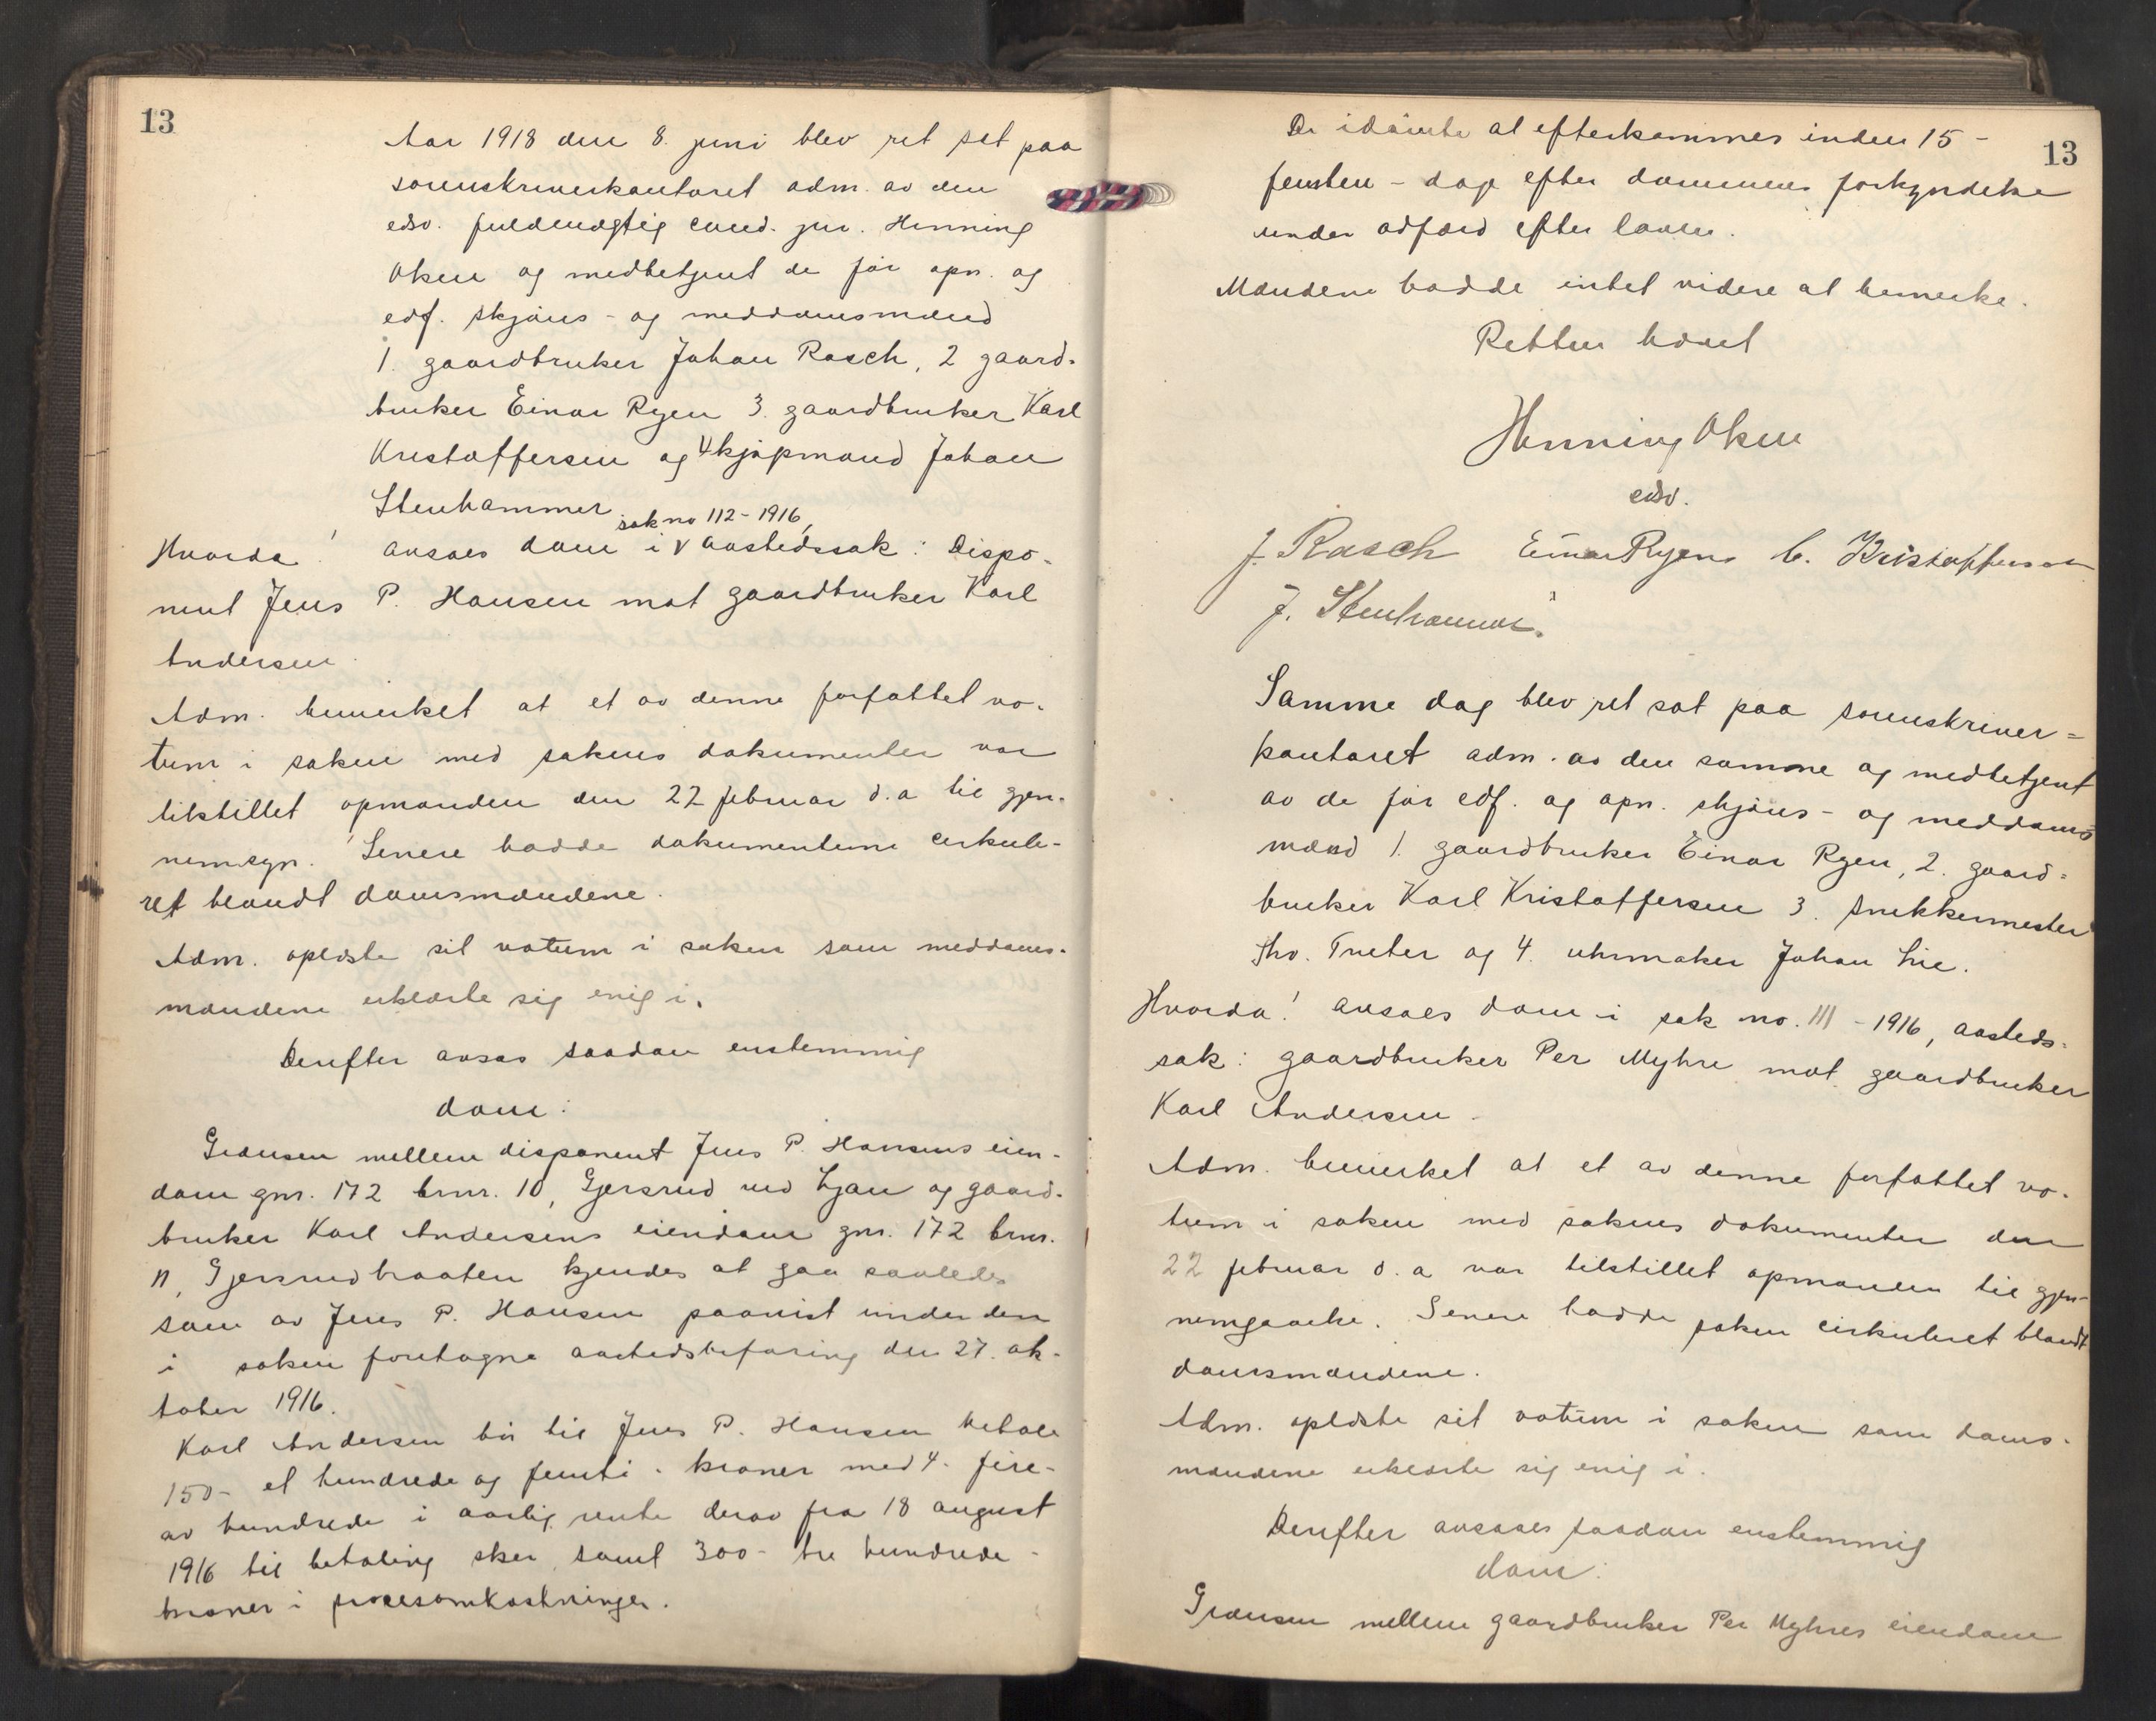 13
Aar 1918 den 8. juni blev ret sat paa
sorenskriverkontoret adm. av den
edsv. fuldmægtig cand. jur. Henning
Oken og medbetjent de før opn. og
edf. skjøns- og meddomsmænd
1. gaardbruker Johan Rasch, 2 gaard-
bruker Einar Ryen 3. gaardbruker Karl
Kristoffersen og 4 kjøpmand Johan
Stenhammer
sak no 112-1916,
Hvorda! avsaes dom i v aastedssak: Dispo-
nent Jens P. Hansen mot gaardbruker Karl
Andersen.
Adm. bemerket at et av denne forfattet vo-
tum i saken med sakens dokumenter var
tilstillet opmanden den 22 februar d.a til gjen-
nemsyn. Senere hadde dokumenterne cirkule-
ret blandt domsmændene.
Adm. oplæste sit votum i saken som meddoms-
mændene erklærte sig enig i.
Derefter avsas saadan enstemmig
dom:
Grænsen mellem disponent Jens P. Hansens eien-
dom gnr. 172 brnr. 10, Gjersrud ved Ljan og gaard-
bruker Karl Andersens eiendom gnr. 172 brnr.
11, Gjersrudbraaten kjendes at gaa saaledes
som av Jens P. Hansen paavist under den
i saken foretagne aastedsbefaring den 27. ok-
tober 1916.
Karl Andersen bør til Jens P. Hansen betale
150- et hundrede og femti - kroner med 4- fire-
av hundrede i aarlig rente derav fra 18 august
1916 til betaling sker, samt 300- tre hundrede -
kroner i procesomkostninger.
13
De idømte at efterkommes inden 15-
femten - dage efter dommens forkyndelse
under adfærd efter loven.
Mændene hadde intet videre at bemerke.
Retten hævet
Henning Oken
edsv.
J. Rasch Einar Ryen C. Kristoffersen
J. Stenhammer.
Samme dag blev ret sat paa sorenskriver=
kontoret adm. av den samme og medbetjent
av de før edf. og opn. skjøns- og meddoms
mænd 1. gaardbruker Einar Ryen, 2. gaard=
bruker Karl Kristoffersen 3. snekkermester
Thv. Tveter og 4. uhrmaker Johan Lie.
Hvorda! avsaes dom i sak no. 111-1916, aasteds-
sak: gaardbruker Per Myhre mot gaardbruker
Karl Andersen.
Adm. bemerket at et av denne forfattet vo-
tum i saken med sakens dokumenter den
22 februar d.a var tilstillet opmanden til gjen-
nemgaaelse. Senere hadde saken cirkuleret blandt
domsmændene.
Adm. oplæste sit votum i saken som doms-
mændene erklærte sig enig i.
Derefter avsaes saadan enstemmig
dom:
Grænsen mellem gaardbruker Per Myhres eiendom